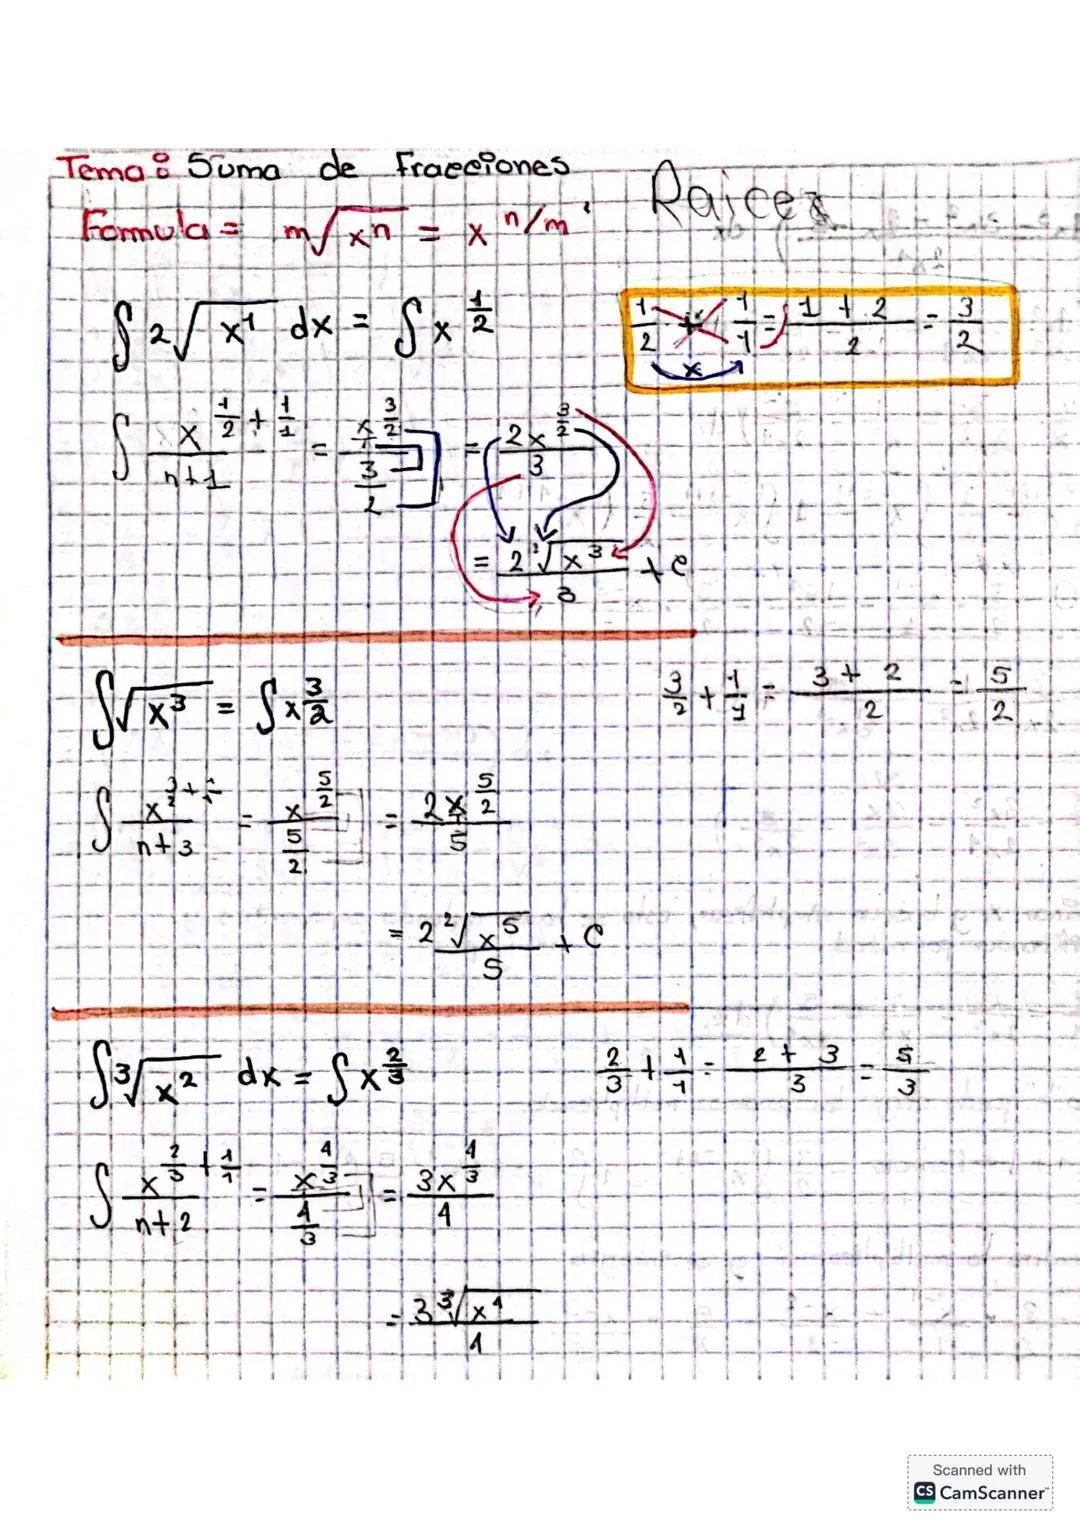 Tema: Suma de Fracciones
Raices
Formula = m√xⁿ = x n/m
∫ 2√x¹ dx = ∫ x 1/2
1/2 + 1/1 = 1 + 2 / 2 = 3/2
x
∫ x 1/2 + 1/1 / n+1 = x 3/2 / 3/2 = 2x 3/2 / 3
= 2 ²√x³ / 3 + c
∫√x³ = ∫ x 3/2
3/2 + 1/1 = 3 + 2 / 2 = 5/2
∫ x 3/2 + 1/1 / n+3 = x 5/2 / 5/2 = 2x 5/2 / 5
= 2 ²√x⁵ / 5 + C
∫ ³√x² dx = ∫ x 2/3
2/3 + 1/1 = 2 + 3 / 3 = 5/3
∫ x 2/3 + 1/1 / n+2 = x 4/3 / 4/3 = 3x 4/3 / 4
= 3 ³√x⁴ / 4
Scanned with
CS CamScanner